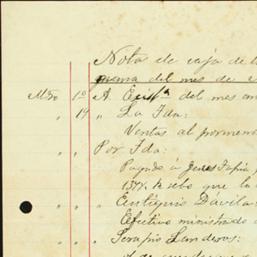 Nota de caja de la
mana del mes de
Mzo 1º A Exista del mes an
" 14 " La Fda:
Ventas al pormeno
" " Por Fda:
Pagado á Jenes Tapia,
de sebo que la
" " " Eutiquio Davila:
Efectivo ministrado
" " " Serapio Landeros: